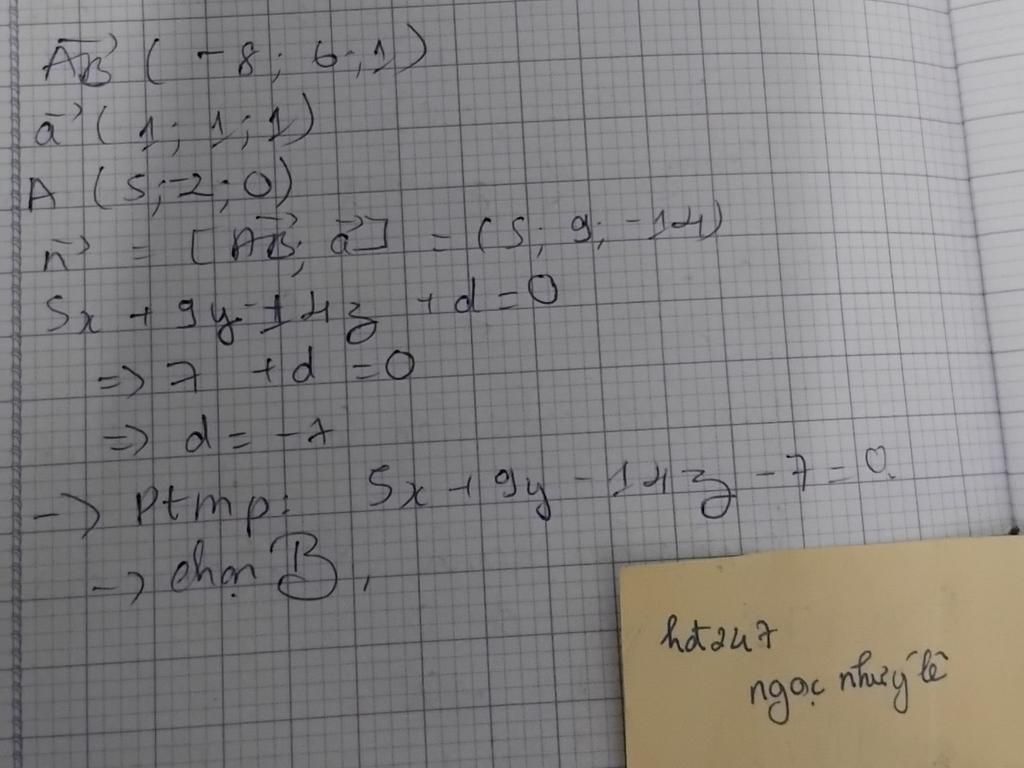 AB→ ( -8; 6; 1)
a→ ( 1; 1; 1)
A ( 5; -2; 0)
n→ = [AB→; a→] = (5; 9; -14)
5x + 9y - 14z + d = 0
=> 7 + d = 0
=> d = -7
-> Ptmp: 5x + 9y - 14z - 7 = 0.
-> chọn B,
hđ247
ngọc như ý lê